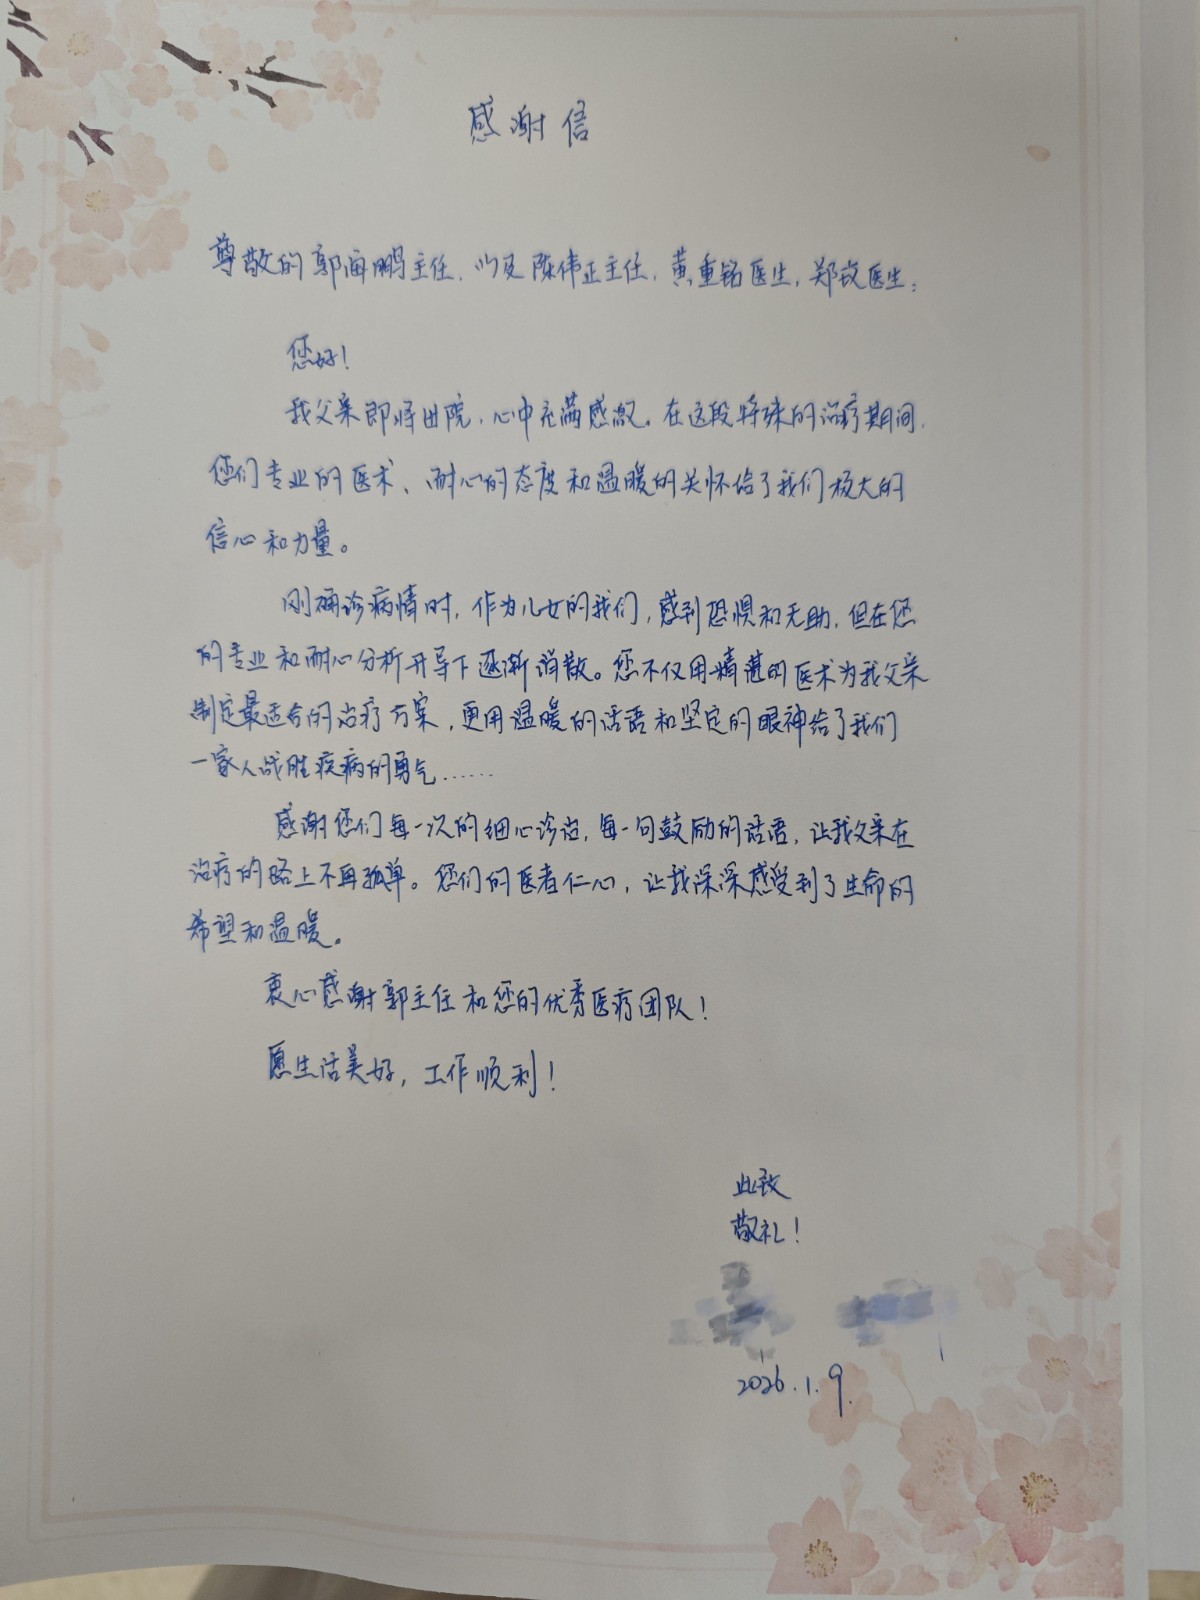 感谢信
尊敬的郭海鹏主任、以及陈伟正主任、黄重铭医生、郑玫医生：
您好！
我父亲即将出院，心中充满感激。在这段特殊的治疗期间，
您们专业的医术、耐心的态度和温暖的关怀给了我们极大的
信心和力量。
刚确诊病情时，作为儿女的我们，感到恐惧和无助，但在您
的专业和耐心分析开导下逐渐消散。您不仅用精湛的医术为我父亲
制定最适合的治疗方案，更用温暖的话语和坚定的眼神给了我们
一家人战胜疾病的勇气……
感谢您们每一次的细心诊治，每一句鼓励的话语，让我父亲在
治疗的路上不再孤单。您们的医者仁心，让我深深感受到了生命的
希望和温暖。
衷心感谢郭主任和您的优秀医疗团队！
愿生活美好，工作顺利！
此致
敬礼！
2026.1.9.